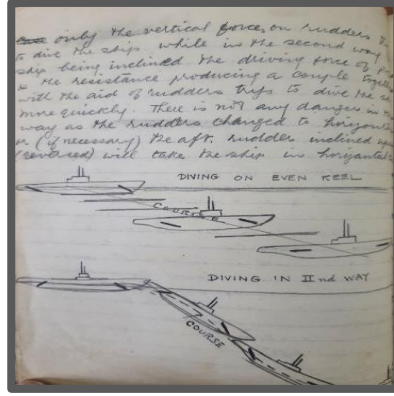 only the vertical forces on rudders
to dive the ship while in the second way
ship being inclined the driving force of
is the resistance producing a couple
with the aid of rudders trys to dive the
more quickly. There is not any danger in
way as the rudders changed to
or (if necessary) the aft. rudder inclined
(reversed) will take the ship in
DIVING ON EVEN KEEL
COURSE
DIVING IN IInd WAY
COURSE